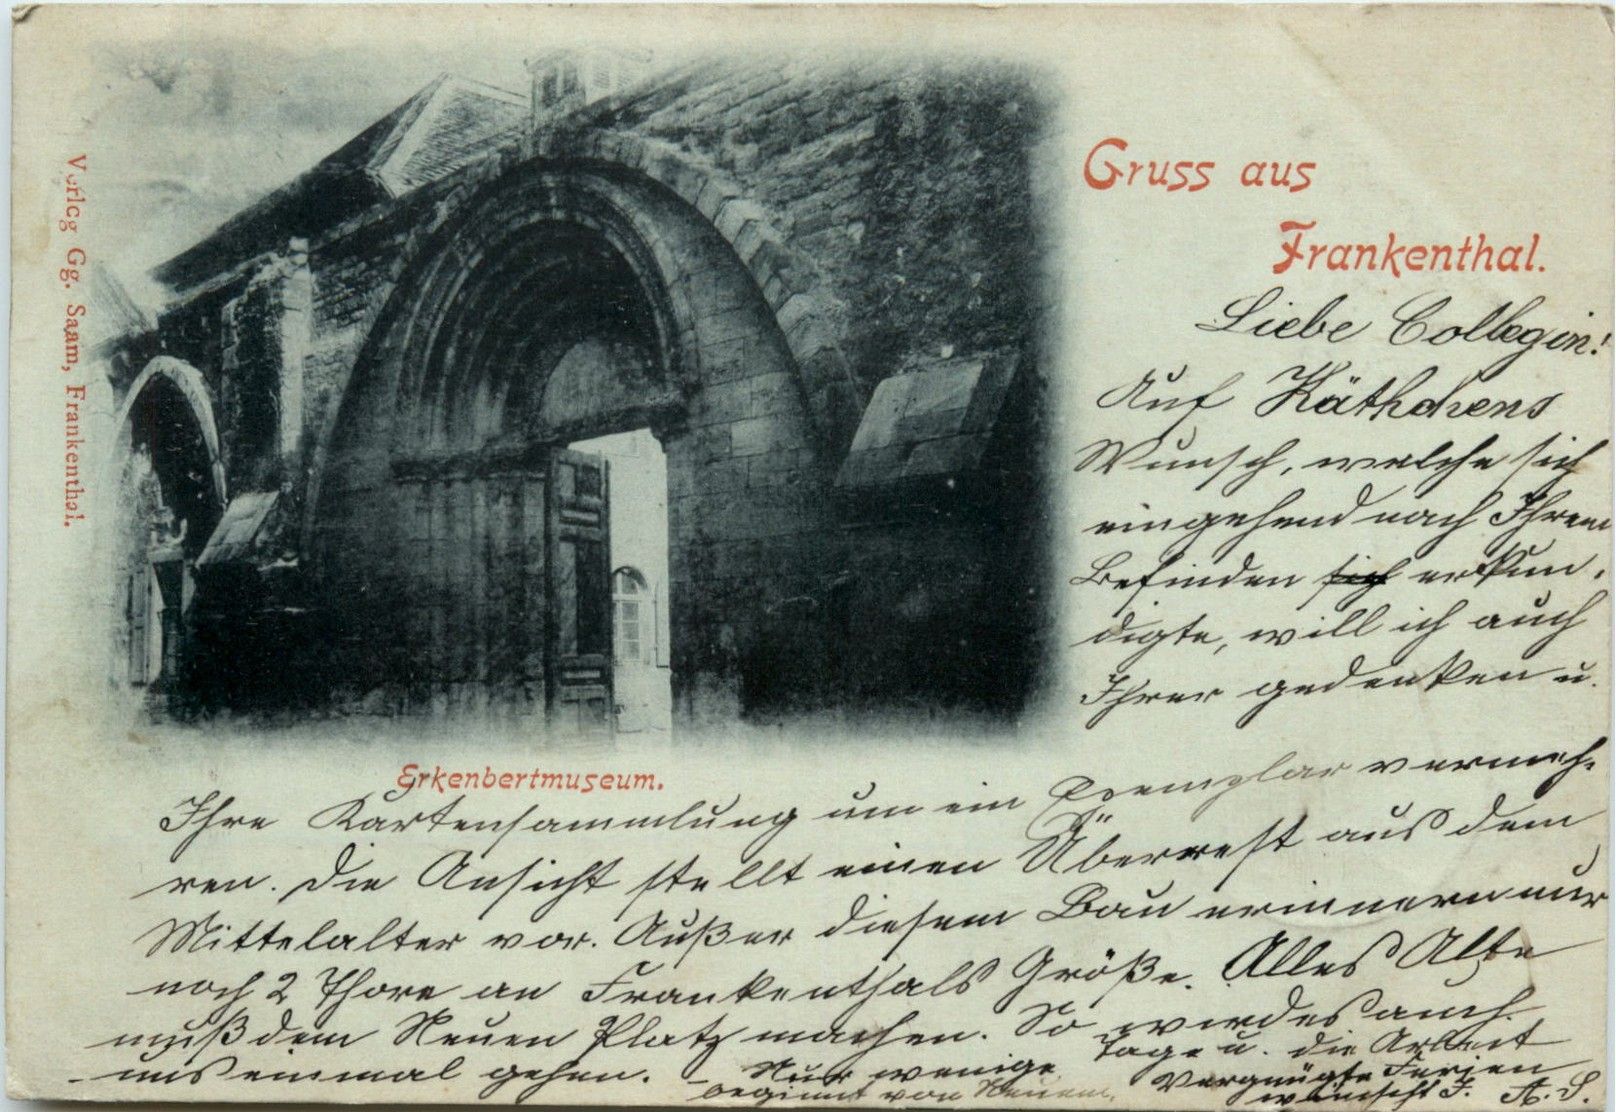 Verlag Gg. Saam, Frankenthal.
Gruss aus
Frankenthal.
Erkenbertmuseum.
Liebe Collegin!
Auf Käthchens
Wunsch, welche sich
eingehend nach Ihrem
Befinden sich erkun-
digte, will ich auch
Ihrer gedenken u.
Ihre Kartensammlung um ein Exemplar vermeh-
ren. Die Ansicht stellt einen Überrest aus dem
Mittelalter vor. Außer diesem Bau erinnern nur
noch 2 Thore an Frankenthals Größe. Alles Alte
muß dem Neuen Platz machen. So wird es auch
uns einmal gehen. – Nur wenige Tage u. die Arbeit
beginnt von Neuem. Vergnügte Ferien
wünscht I. A. S.